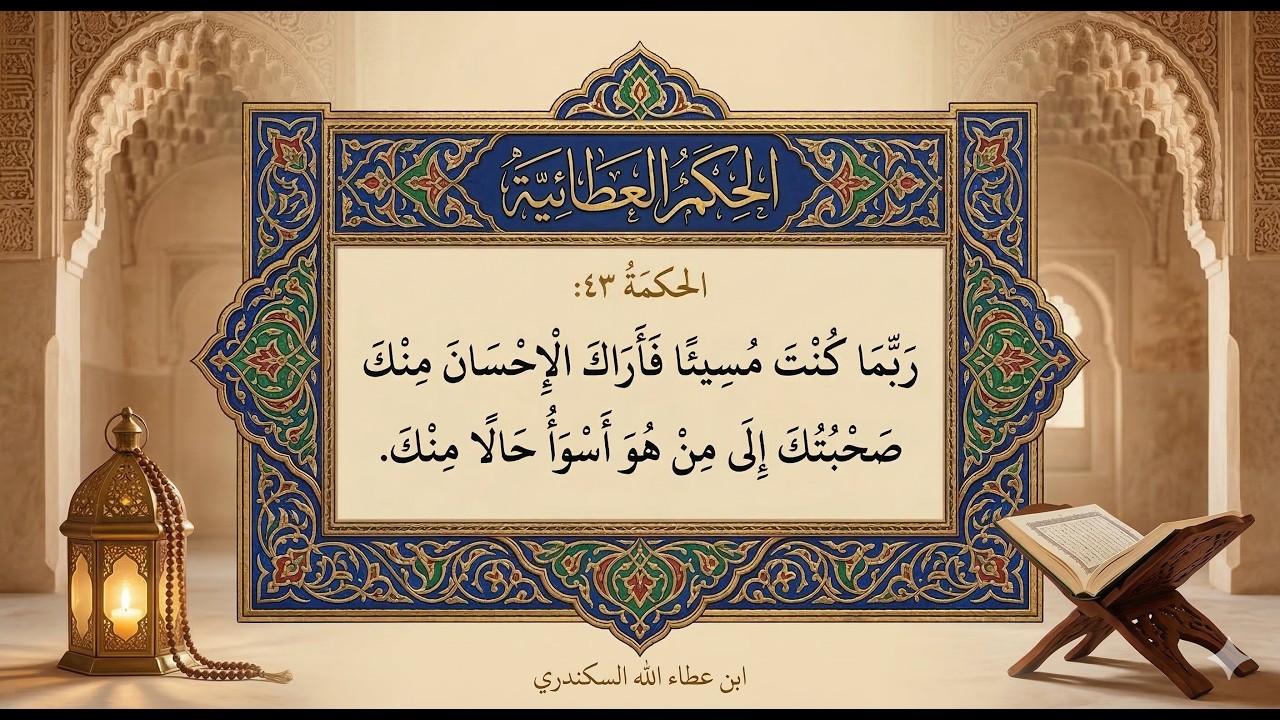 الحِكَمُ العَطَائِيَّة
الحكمَةُ ٤٣:
رَبَّمَا كُنْتَ مُسِيئًا فَأَرَاكَ الْإِحْسَانَ مِنْكَ
صَحْبُتُكَ إِلَى مِنْ هُوَ أَسْوَأُ حَالًا مِنْكَ.
ابن عطاء الله السكندري